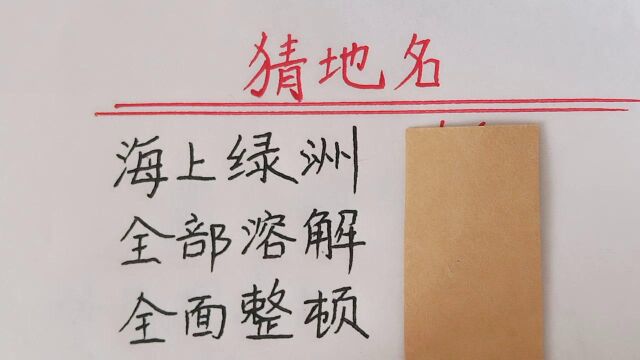 猜地名
海上绿洲
全部溶解
全面整顿